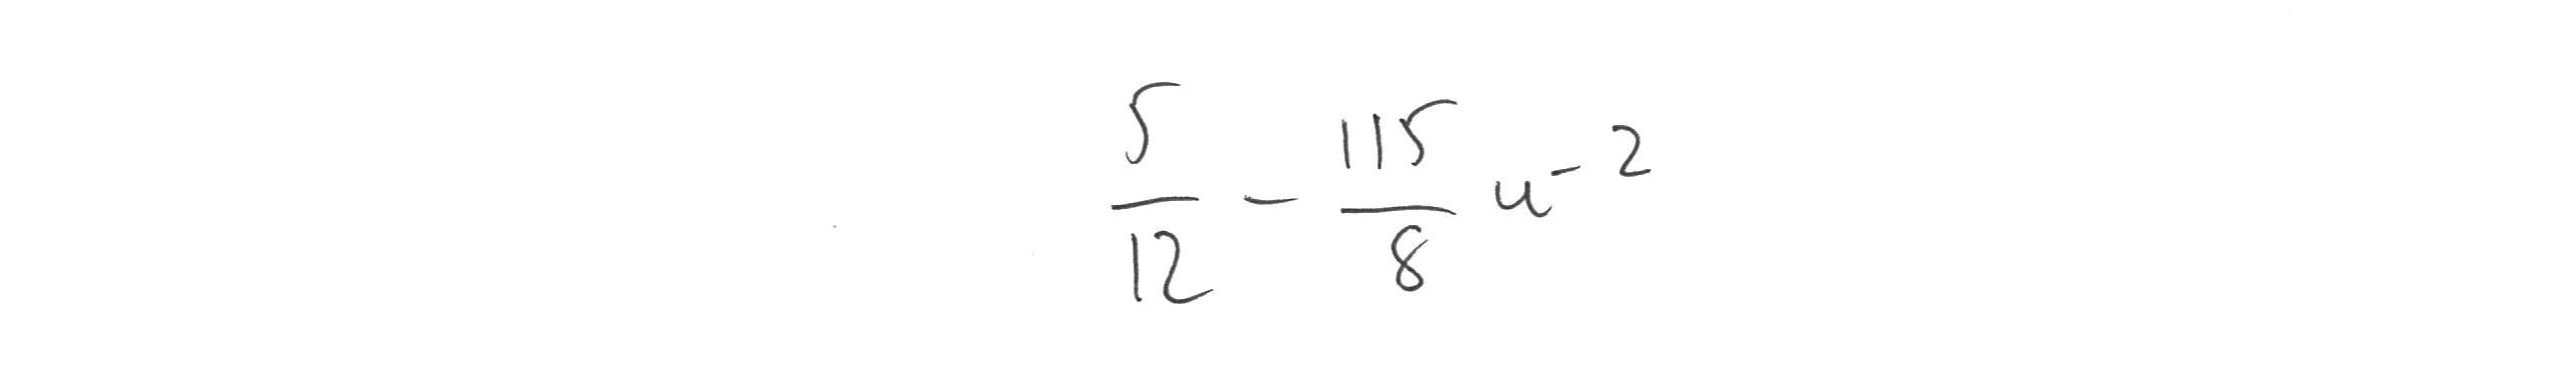 \frac{5}{12} - \frac{115}{8} u^{-2}